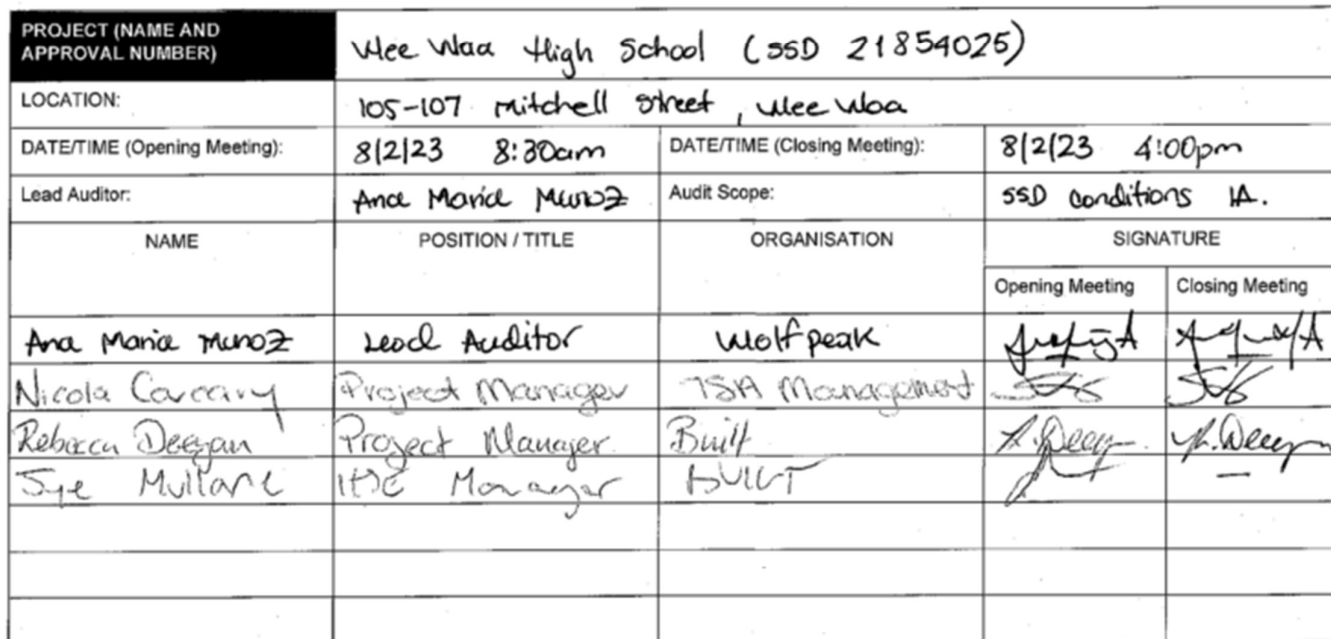 PROJECT (NAME AND APPROVAL NUMBER) Wee Waa High School (SSD 21854025)
LOCATION: 105-107 Mitchell Street, Wee Waa
DATE/TIME (Opening Meeting): 8/2/23 8:30am DATE/TIME (Closing Meeting): 8/2/23 4:00pm
Lead Auditor: Ana Maria Munoz Audit Scope: SSD conditions IA.
NAME POSITION / TITLE ORGANISATION SIGNATURE
Opening Meeting Closing Meeting
Ana Maria Munoz Lead Auditor Wolfpeak
Nicola Project Manager TSA Management
Rebecca Deegan Project Manager Built R. Deeg R. Deeg
Mullane Manager BUILT